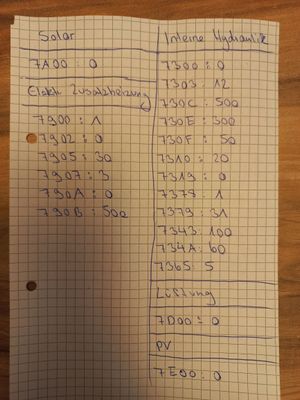 Solar
7A00 : 0
Elektr. Zusatzheizung
7900 : 1
7902 : 0
7905 : 30
7907 : 3
790A : 0
790B : 500
Interne Hydraulik
7300 : 0
7303 : 12
730C : 500
730E : 300
730F : 50
7310 : 20
7319 : 0
7378 : 1
7379 : 31
7343 : 100
734A : 60
7365 : 5
Lüftung
7D00 : 0
PV
7E00 : 0